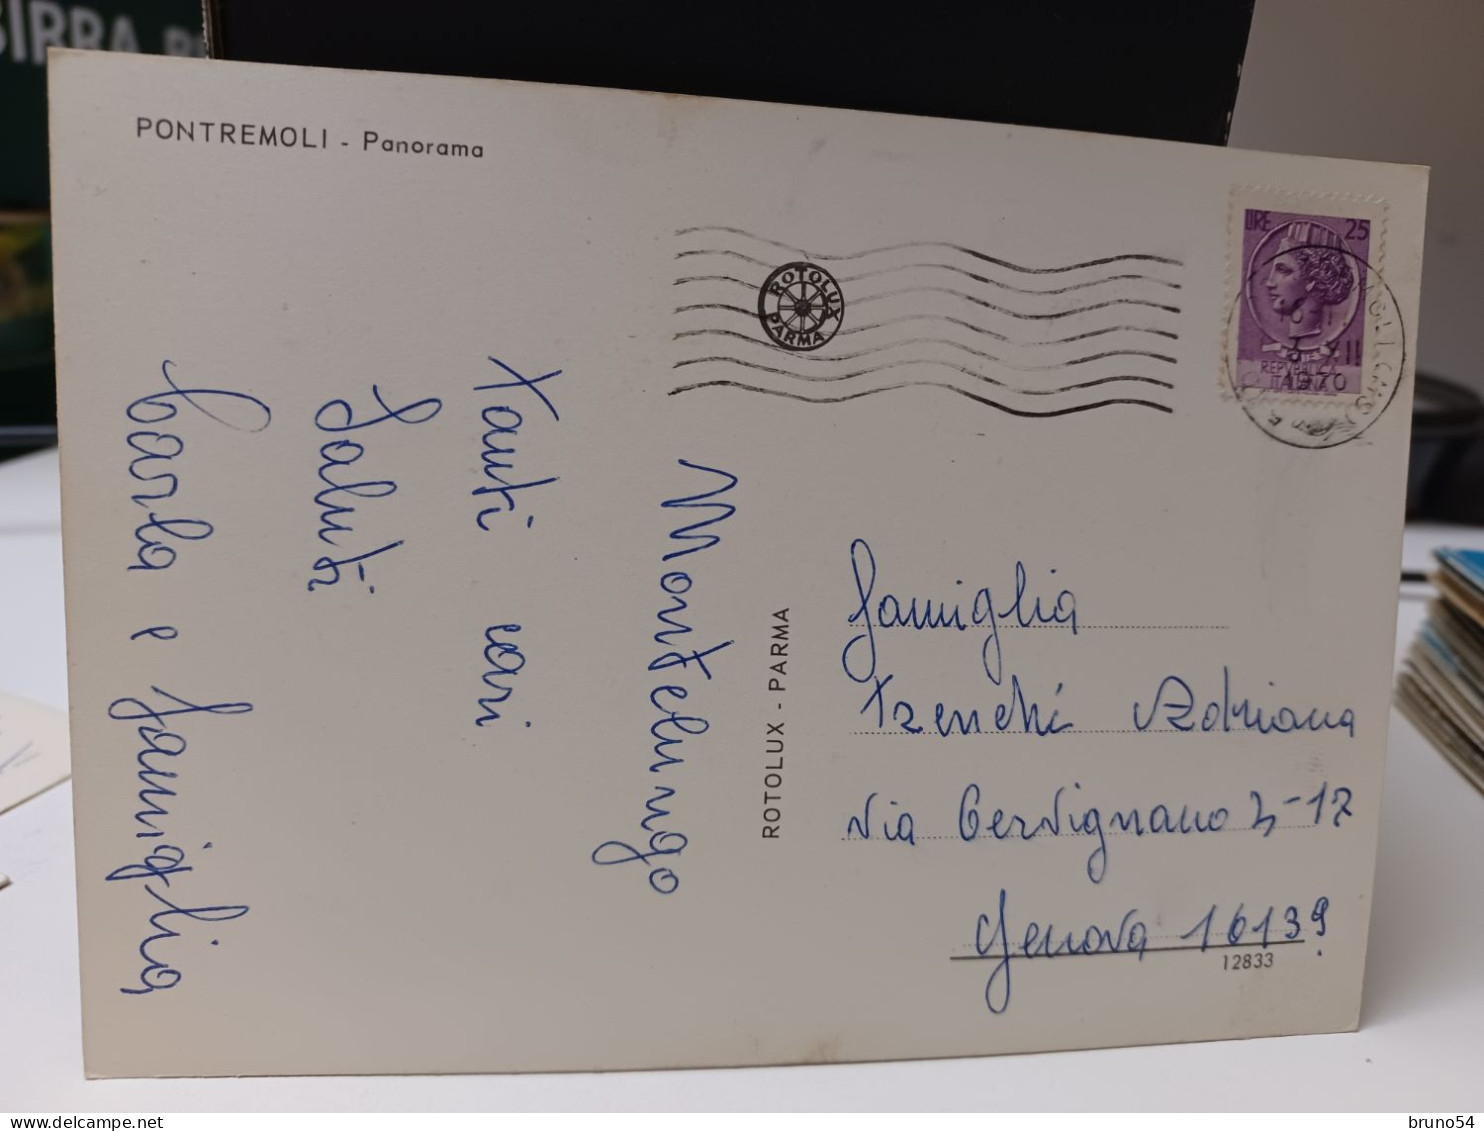 BIRRA
PONTREMOLI - Panorama
ROTOLUX
PARMA
LIRE 25
REPVBBLICA
ITALIANA
1970
Montelungo
Tanti cari
Saluti
Carla e famiglia
ROTOLUX - PARMA
famiglia
Adriana
Via Cervignano 3-17
Genova 16139
12833
bruno54